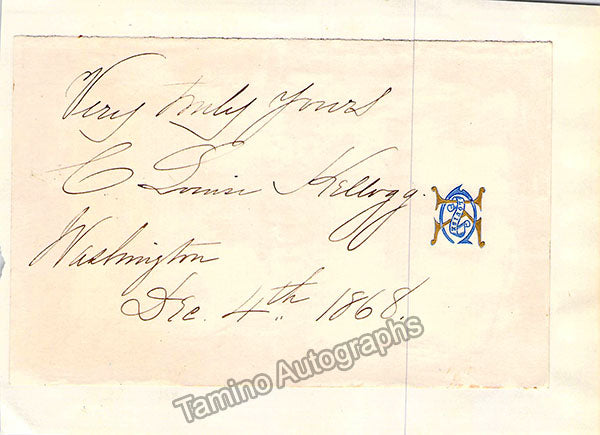 Very truly Yours
C. Louise Kellogg.
LOUISE
Washington
Dec. 4th 1868.
Tamino Autographs